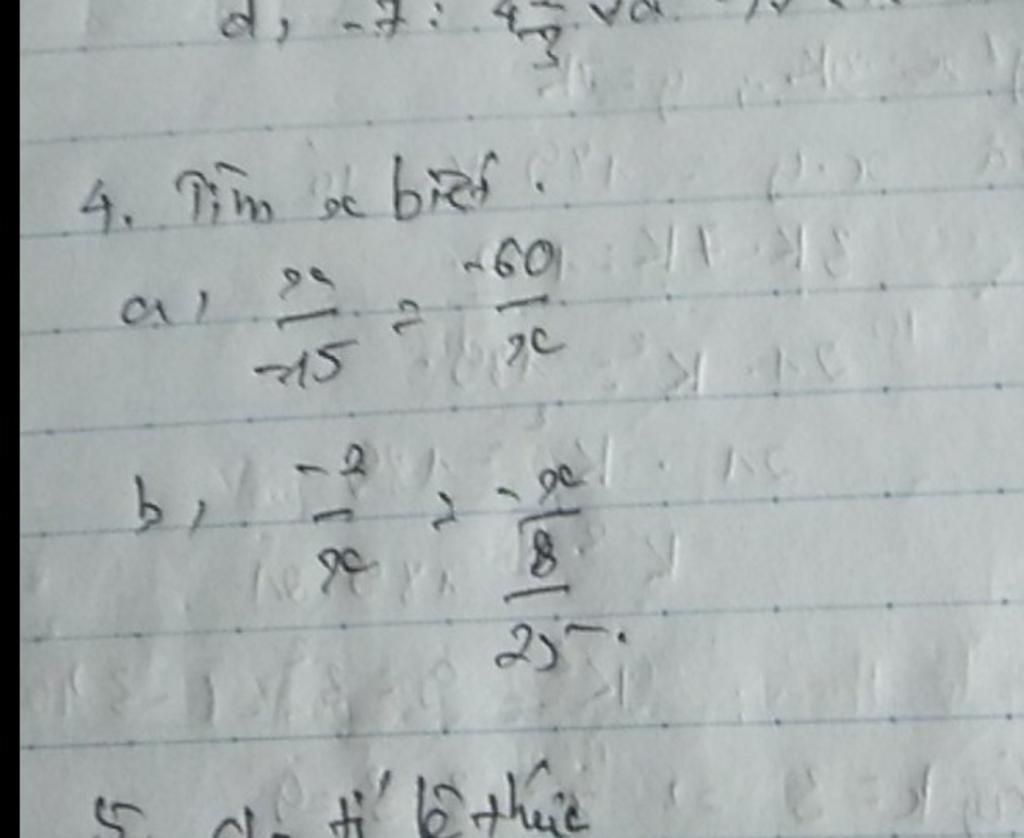 d, -7 : 4
3
4. Tìm x biết.
a, x/-15 = -60/x
b, -2/x = -x/(8/25).
5. d. tỉ lệ thức